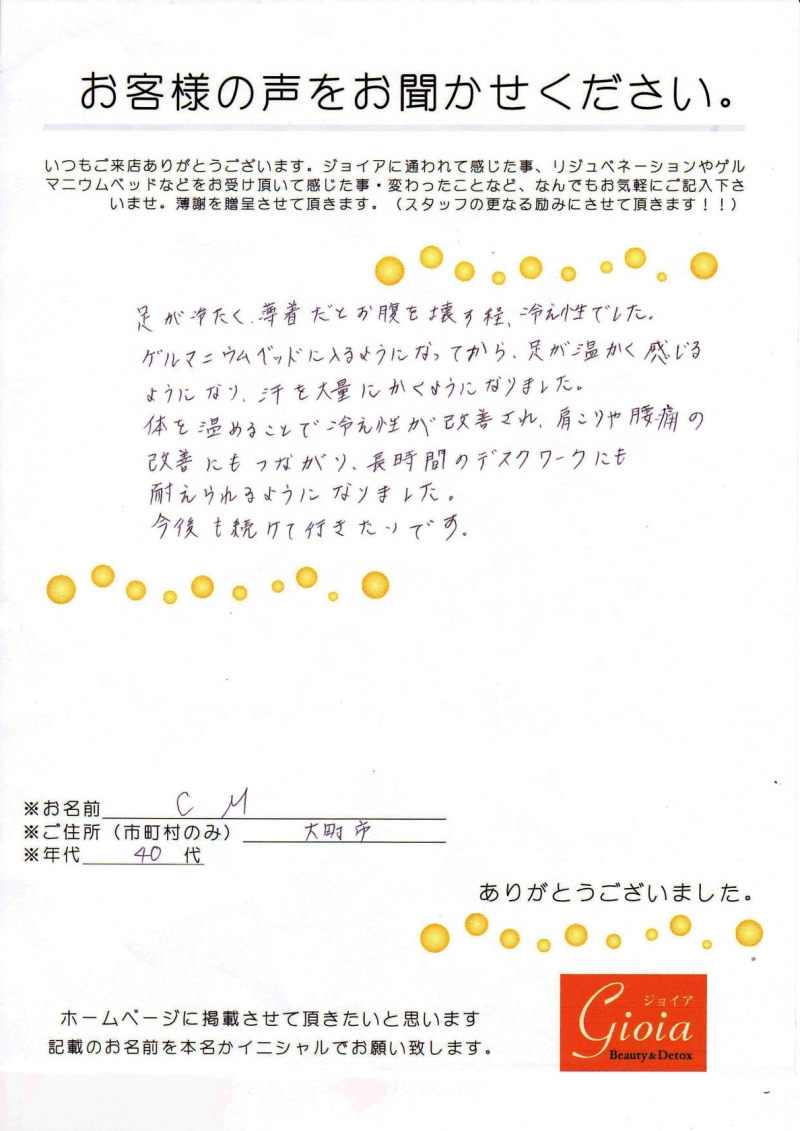 お客様の声をお聞かせください。
いつもご来店ありがとうございます。ジョイアに通われて感じた事、リジュベネーションやゲル
マニウムベッドなどをお受け頂いて感じた事・変わったことなど、なんでもお気軽にご記入下さ
いませ。薄謝を贈呈させて頂きます。（スタッフの更なる励みにさせて頂きます！！）
足が冷たく、薄着だとお腹を壊す程、冷え性でした。
ゲルマニウムベッドに入るようになってから、足が温かく感じる
ようになり、汗を大量にかくようになりました。
体を温めることで冷え性が改善され、肩こりや腰痛の
改善にもつながり、長時間のデスクワークにも
耐えられるようになりました。
今後も続けて行きたいです。
※お名前 C M
※ご住所（市町村のみ） 大町市
※年代 40 代
ありがとうございました。
ホームページに掲載させて頂きたいと思います
記載のお名前を本名かイニシャルでお願い致します。
ジョイア
Gioia
Beauty & Detox